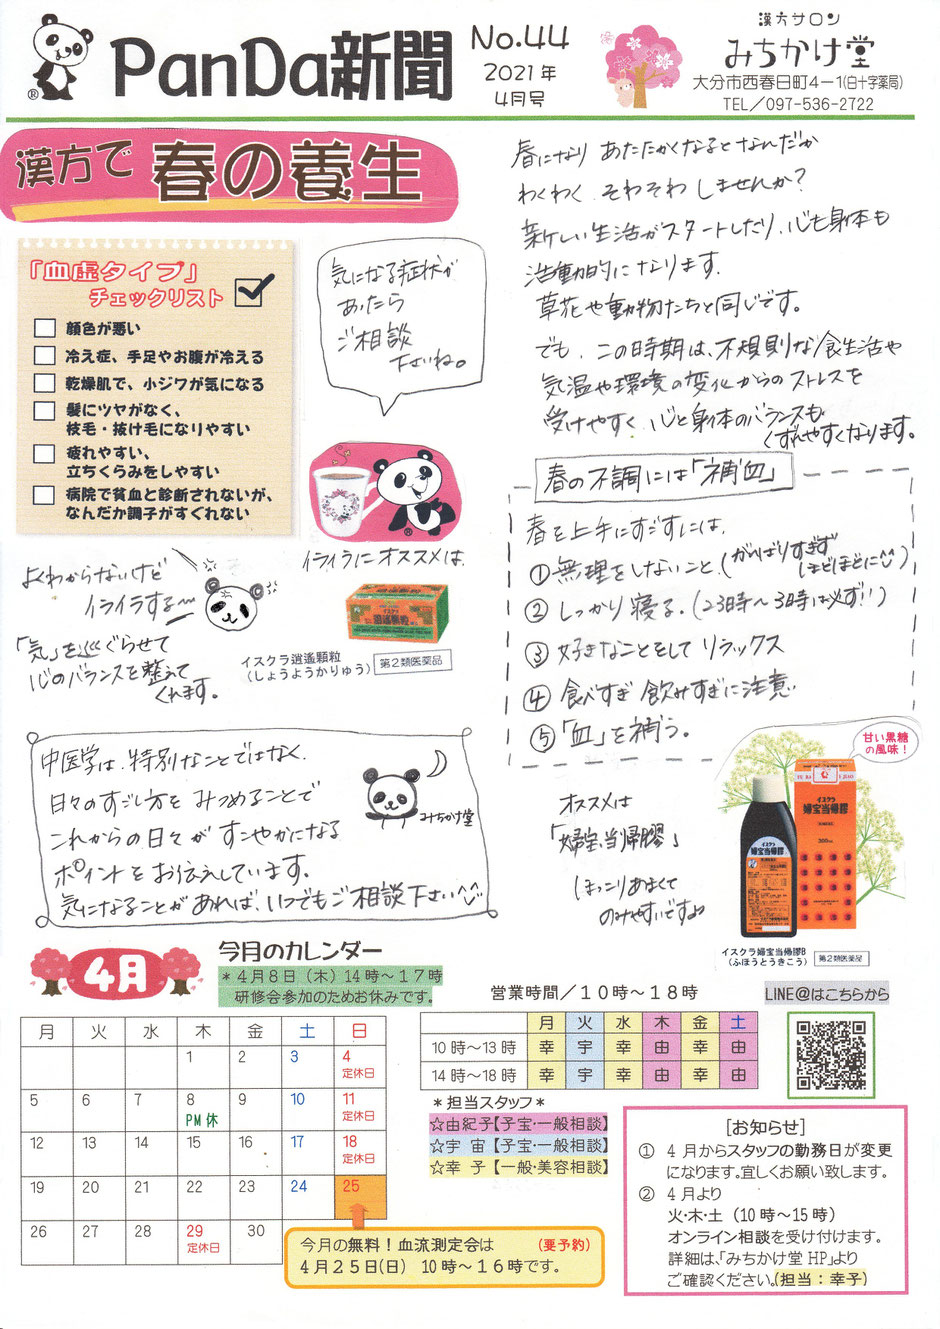 PanDa新聞
No.44
2021年
4月号
漢方サロン
みちかけ堂
大分市西春日町4-1(白十字薬局)
TEL/097-536-2722
漢方で 春の養生
「血虚タイプ」
チェックリスト
顔色が悪い
冷え症、手足やお腹が冷える
乾燥肌で、小ジワが気になる
髪にツヤがなく、
枝毛・抜け毛になりやすい
疲れやすい、
立ちくらみをしやすい
病院で貧血と診断されないが、
なんだか調子がすぐれない
気になる症状が
あったら
ご相談
下さいね。
春になり あたたかくなるとなんだか
わくわく そわそわ しませんか?
新しい生活がスタートしたり、心も身体も
活動的になります。
草花や動物たちと同じです。
でも、この時期は、不規則な食生活や
気温や環境の変化からのストレスを
受けやすく 心と身体のバランスも
くずれやすくなります。
春の不調には「補血」
春を上手にすごすには、
①無理をしないこと。(がんばりすぎず
ほどほどに^^)
②しっかり寝る。(23時~3時は必ず!!)
③好きなことをして リラックス
④食べすぎ 飲みすぎに注意
⑤「血」を補う。
よくわからないけど
イライラする〜
「気」を巡ぐらせて
心のバランスを整えて
くれます。
イライラにオススメは
イスクラ逍遙顆粒
(しょうようかりゅう)
第2類医薬品
中医学は、特別なことではなく、
日々のすごし方を みつめることで
これからの日々が すこやかになる
ポイントをお伝えしています。
気になることがあれば、いつでもご相談下さい^^
みちかけ堂
オススメは
「婦宝当帰膠」
ほっこりあまくて
のみやすいですよ
甘い黒糖
の風味!
イスクラ
婦宝当帰膠
イスクラ
婦宝当帰膠
300mL
イスクラ婦宝当帰膠B
(ふほうとうきこう)
第2類医薬品
4月
今月のカレンダー
*4月8日(木)14時~17時
研修会参加のためお休みです。
月 火 水 木 金 土 日
1 2 3 4
定休日
5 6 7 8 9 10 11
PM休 定休日
12 13 14 15 16 17 18
定休日
19 20 21 22 23 24 25
26 27 28 29 30
定休日
今月の無料!血流測定会は (要予約)
4月25日(日) 10時~16時です。
営業時間/10時~18時
月 火 水 木 金 土
10時~13時 幸 宇 幸 由 幸 由
14時~18時 幸 宇 幸 由 幸 由
*担当スタッフ*
☆由紀子【子宝・一般相談】
☆宇 宙【子宝・一般相談】
☆幸 子【一般・美容相談】
LINE@はこちらから
[お知らせ]
① 4月からスタッフの勤務日が変更
になります。宜しくお願い致します。
② 4月より
火・木・土(10時~15時)
オンライン相談を受け付けます。
詳細は、「みちかけ堂HP」より
ご確認ください。(担当:幸子)